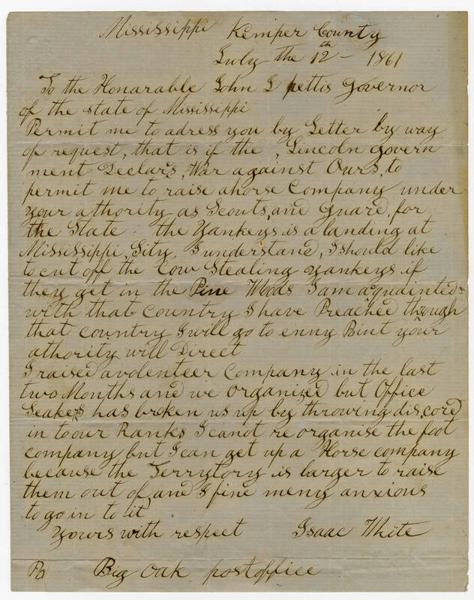 Mississippi Kemper County
July the 12th 1861
To the Honarable John L pettis Governor
of the state of Mississippi
Permit me to adress you by Letter by way
of request, that is if the Lincoln govern
ment Declars, War against Ours, to
permit me to raise a horse Company under
your athority as Scouts, and guard, for
the State. the Yankeys is a landing at
Mississippi City, I understand, I should like
to cut off the Cow Stealing yankeys if
they get in the Pine Woods I am aquainted
with that Country I have Preached through
that country I will go to enny Point your
athority will Direct
I raised a volenteer Company in the last
two Months and we organized but Office
Seakers has broken us up by throwing discord
in to our Ranks I canot re organise the foot
company but I can get up a Horse company
because the Terrytory is larger to raise
them out of and I fine meny anxious
to go in to it
Yours with respect Isaac White
Big Oak postoffice